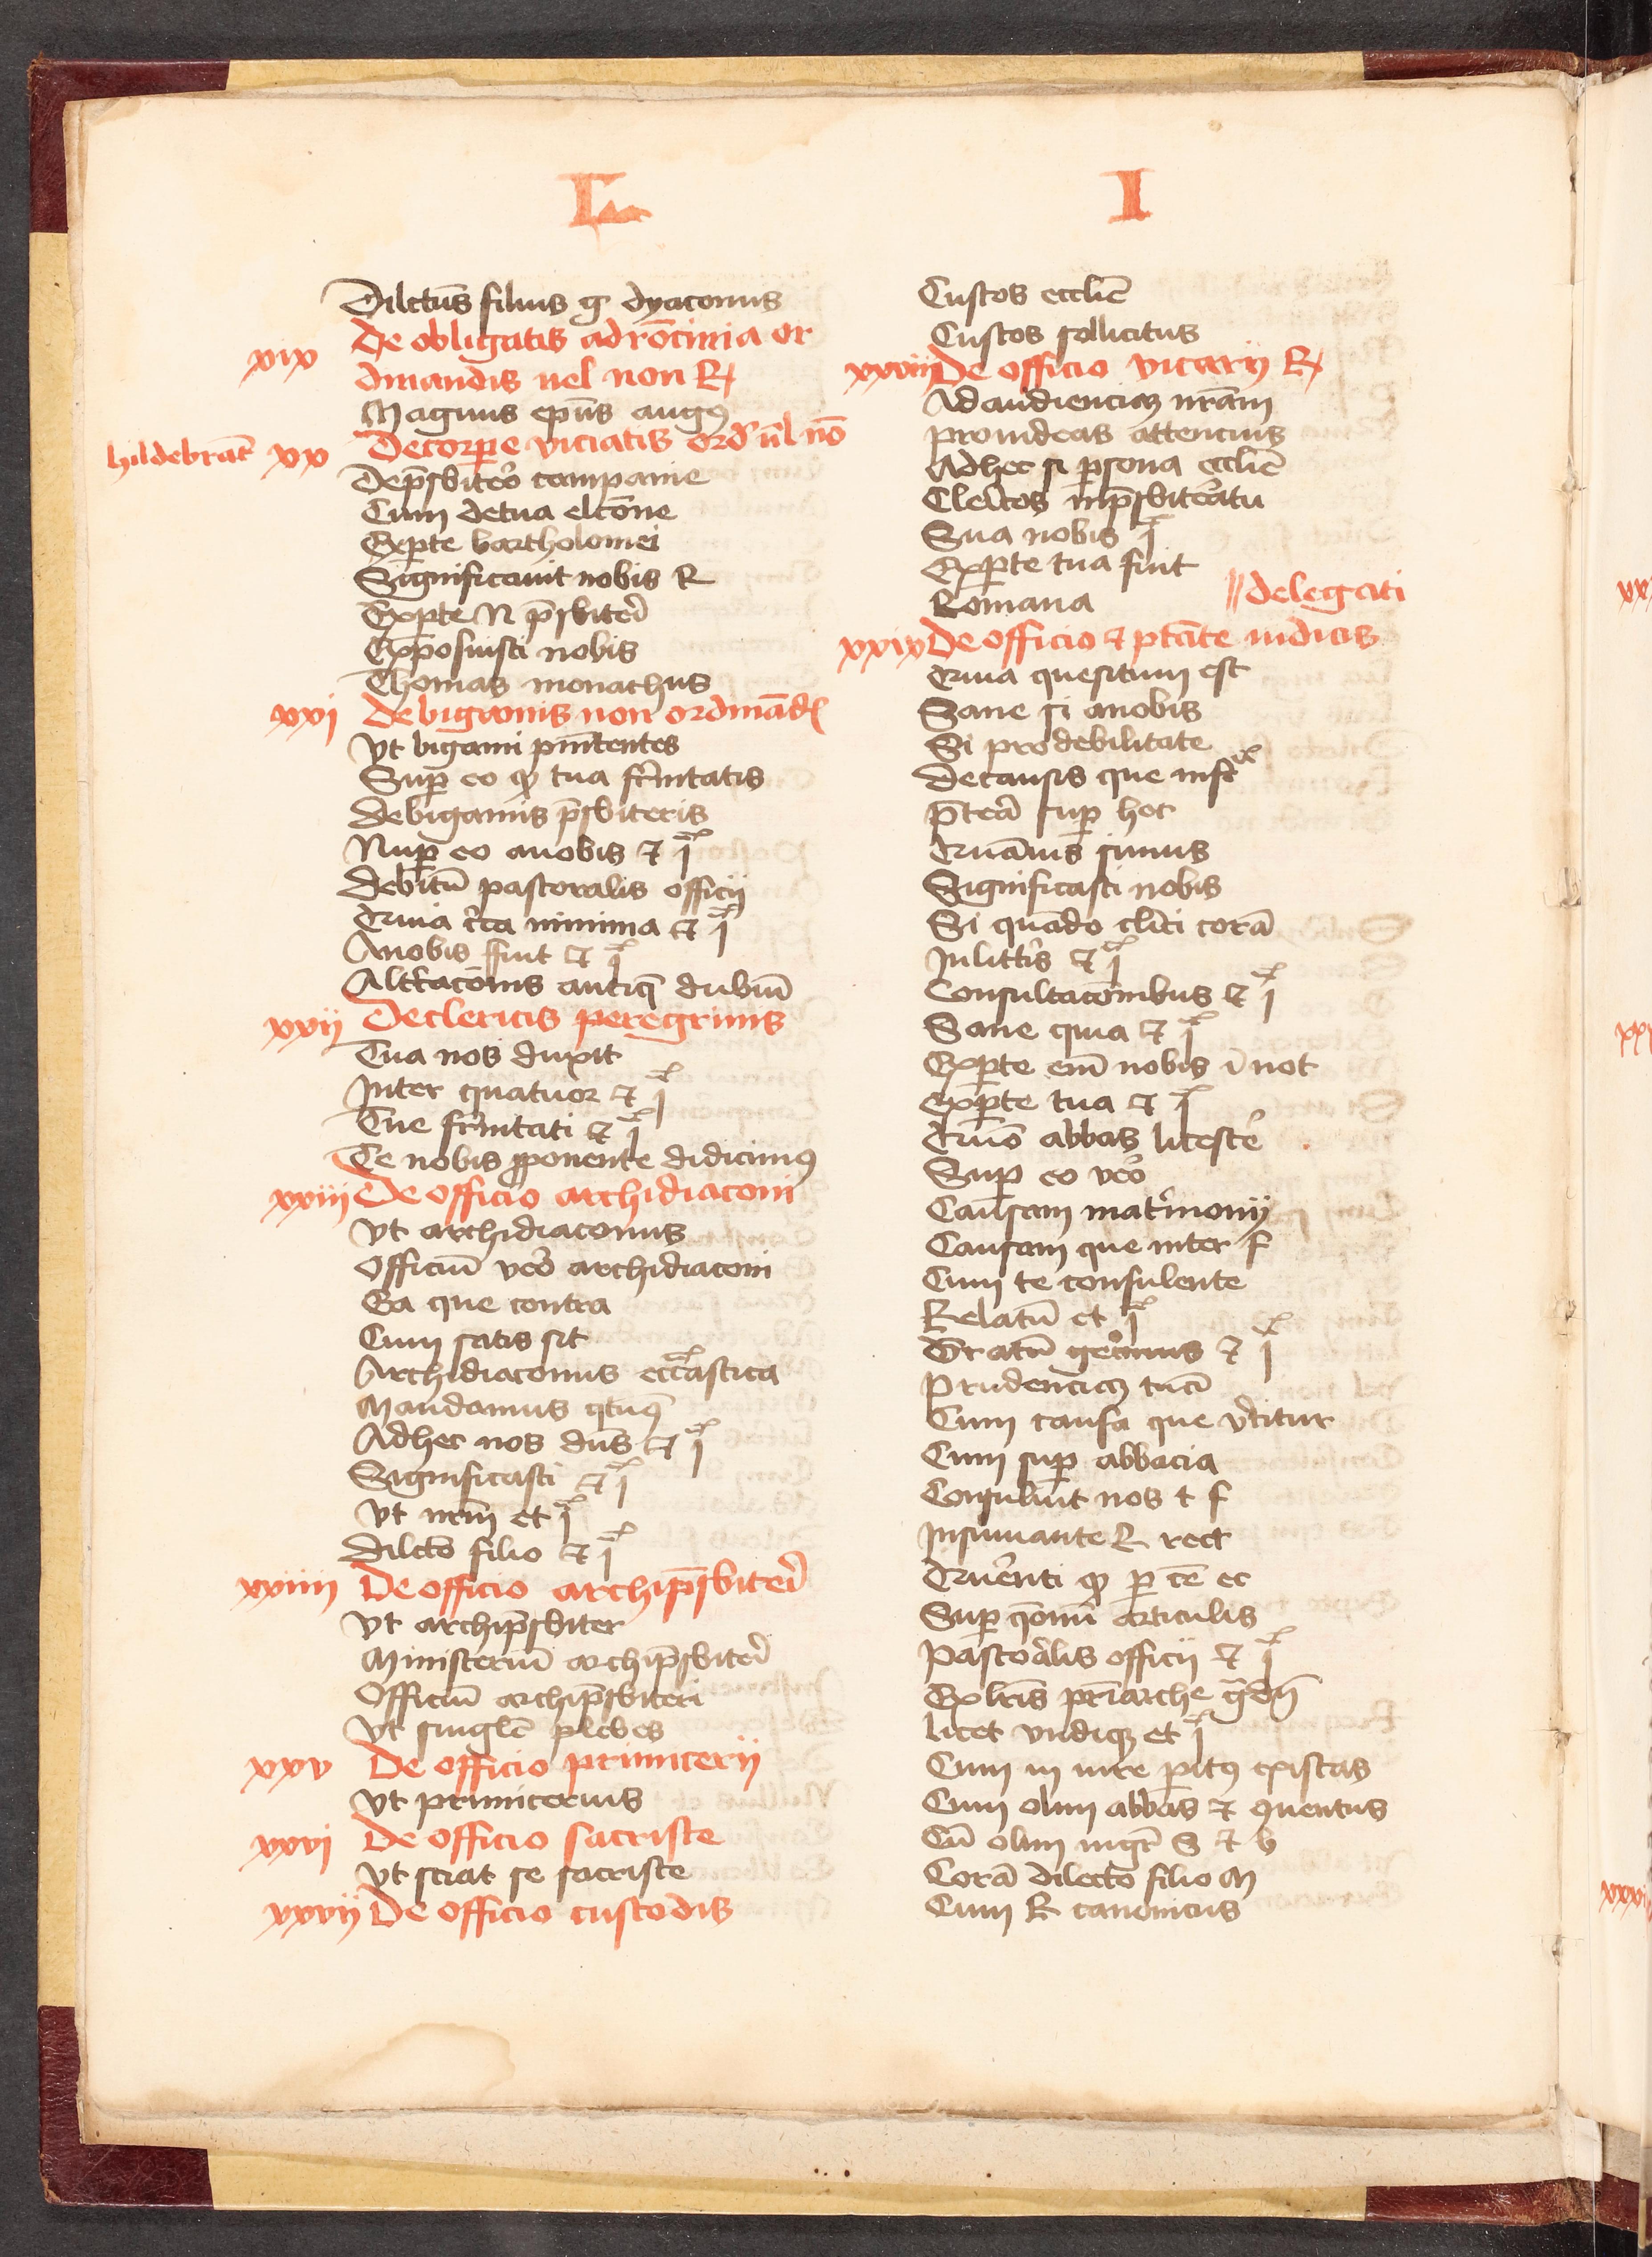 L I
Dilctūs filius g dyaconus
xix De obligatis ad rōcinia or
dinandis uel non R
Magnus epūs augꝰ
hildebrāt xx De corpe viciatis ord' ūl nō
De p̄sbitero campanie
Cum de tua elcōne
Ex pte bartholomei
Significauit nobis R
Ex pte N p̄sbiteri
Exposuisti nobis
Thomas monachus
xxi De bigamis non ordinād
Vt bigami pnītentes
Sup eo ꝙ tua fr̄nitatis
De bigamis p̄sbiteris
Nup eo a nobis et i
Debitū pastoralis officij
Quia circa minima et i
A nobis fuit et i
Altercacōnis antiq̄ dubiū
xxij De clericis peregrinis
Tua nos duxit
Inter quatuor et i
Tue fr̄nitati et i
Te nobis exponente didicimꝰ
xxiij De officio archidiaconi
Vt archidiaconus
Officiū vero archidiaconi
Ea que contra
Cum satis sit
Archidiaconus eccl̄astica
Mandamus
Ad hec nos dn̄s et i
Significasti et i
Vt nr̄m et i
Dilcto filio et i
xxiiij De officio archip̄sbiteri
Vt archip̄sbiter
Ministeriū archip̄sbiteri
Officiū archip̄sbiteri
Vt singlē plebes
xxv De officio primicerij
Vt primicerius
xxvi De officio sacriste
Vt sciat se sacriste
xxvij De officio custodis
Custos eccliē
Custos sollicitus
xxviij De officio vicarij R
Ad audienciaꝫ nrām
prouideas attencius
Ad hec si psona eccliē
Clericos in p̄sbiteratu
Sua nobis i
Ex pte tua fuit
Romana
delegati
xxix De officio et ptāte iudicis
Quia quesitum est
Sane si a nobis
Si pro debilitate
De causis que infr
P̄terea sup hoc
Quāuis simus
Significasti nobis
Si quādo clici corā
In litt'is et i
Consultacōnibus et i
Sane quia et i
Ex pte em̄ nobis ī not
Ex pte tua et i
Quō abbas licestre
Sup eo vero
Causam matrimonij
Causam que inter f
Cum te consulente
Relatū et i
Gratū gerimus et i
Prudenciaꝫ tuā
Cum causa que vertitur
Cum sup abbacia
Coguliūt nos t f
Insinuante R rect
Querenti ꝙ p
Sup q̄onū articulis
Pastoralis officij et i
Ex lrīs prīarche
licet vndiqꝫ et i
Cum in iure pitꝰ existas
Cum olim abbas et ꝯuentus
Cū olim mgr̄ S et b
Corā dilecto filio M
Cum R canonicus